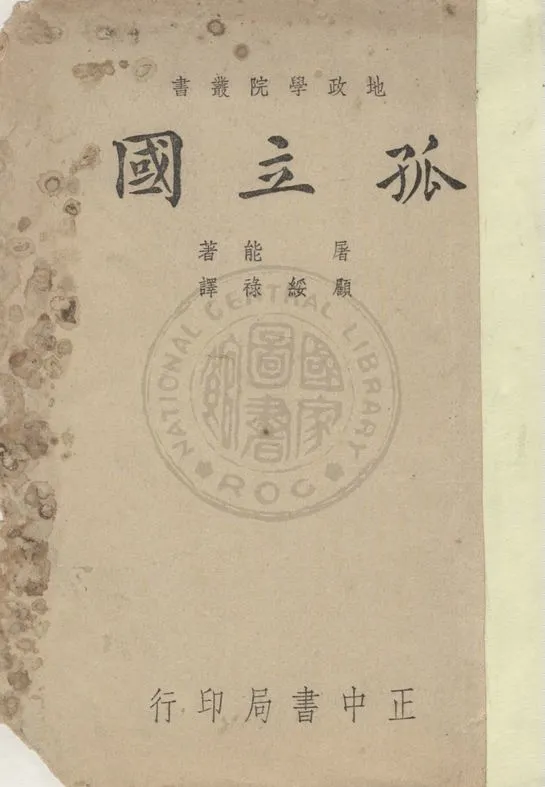 地政學院叢書
孤立國
屠能著
顧綏祿譯
NATIONAL CENTRAL LIBRARY
國家圖書館
ROC
正中書局印行